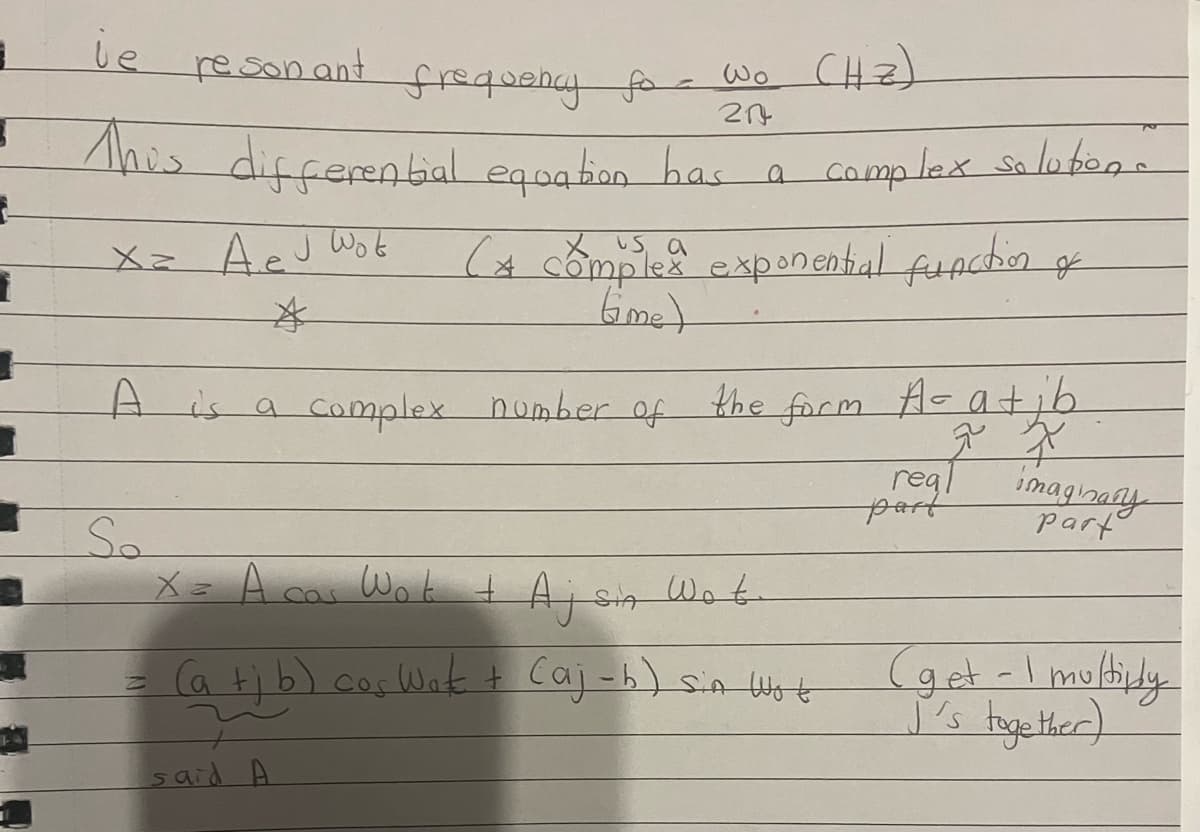 ie resonant frequency fo = ωo (Hz)
2π
This differential equation has a complex solution ~
x = A e^jωot (* x is a complex exponential function of
* time)
A is a complex number of the form A = a + jb
real imaginary
part part
So
x = A cos ωot + Aj sin ωot.
= (a + jb) cos ωot + (aj - b) sin ωot (get -1 multiply
j's together)
said A